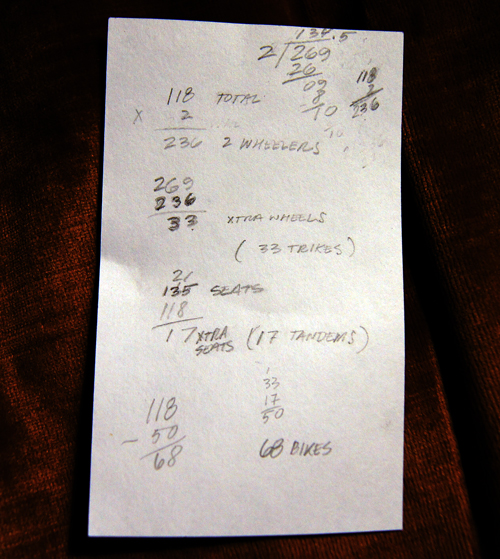 134.5
2/269
26
09
8
10
118
2
236
118 TOTAL
x 2
236 2 WHEELERS
269
236
33 XTRA WHEELS
(33 TRIKES)
135 SEATS
118
17 XTRA SEATS (17 TANDEMS)
1
33
17
50
118
- 50
68
68 BIKES